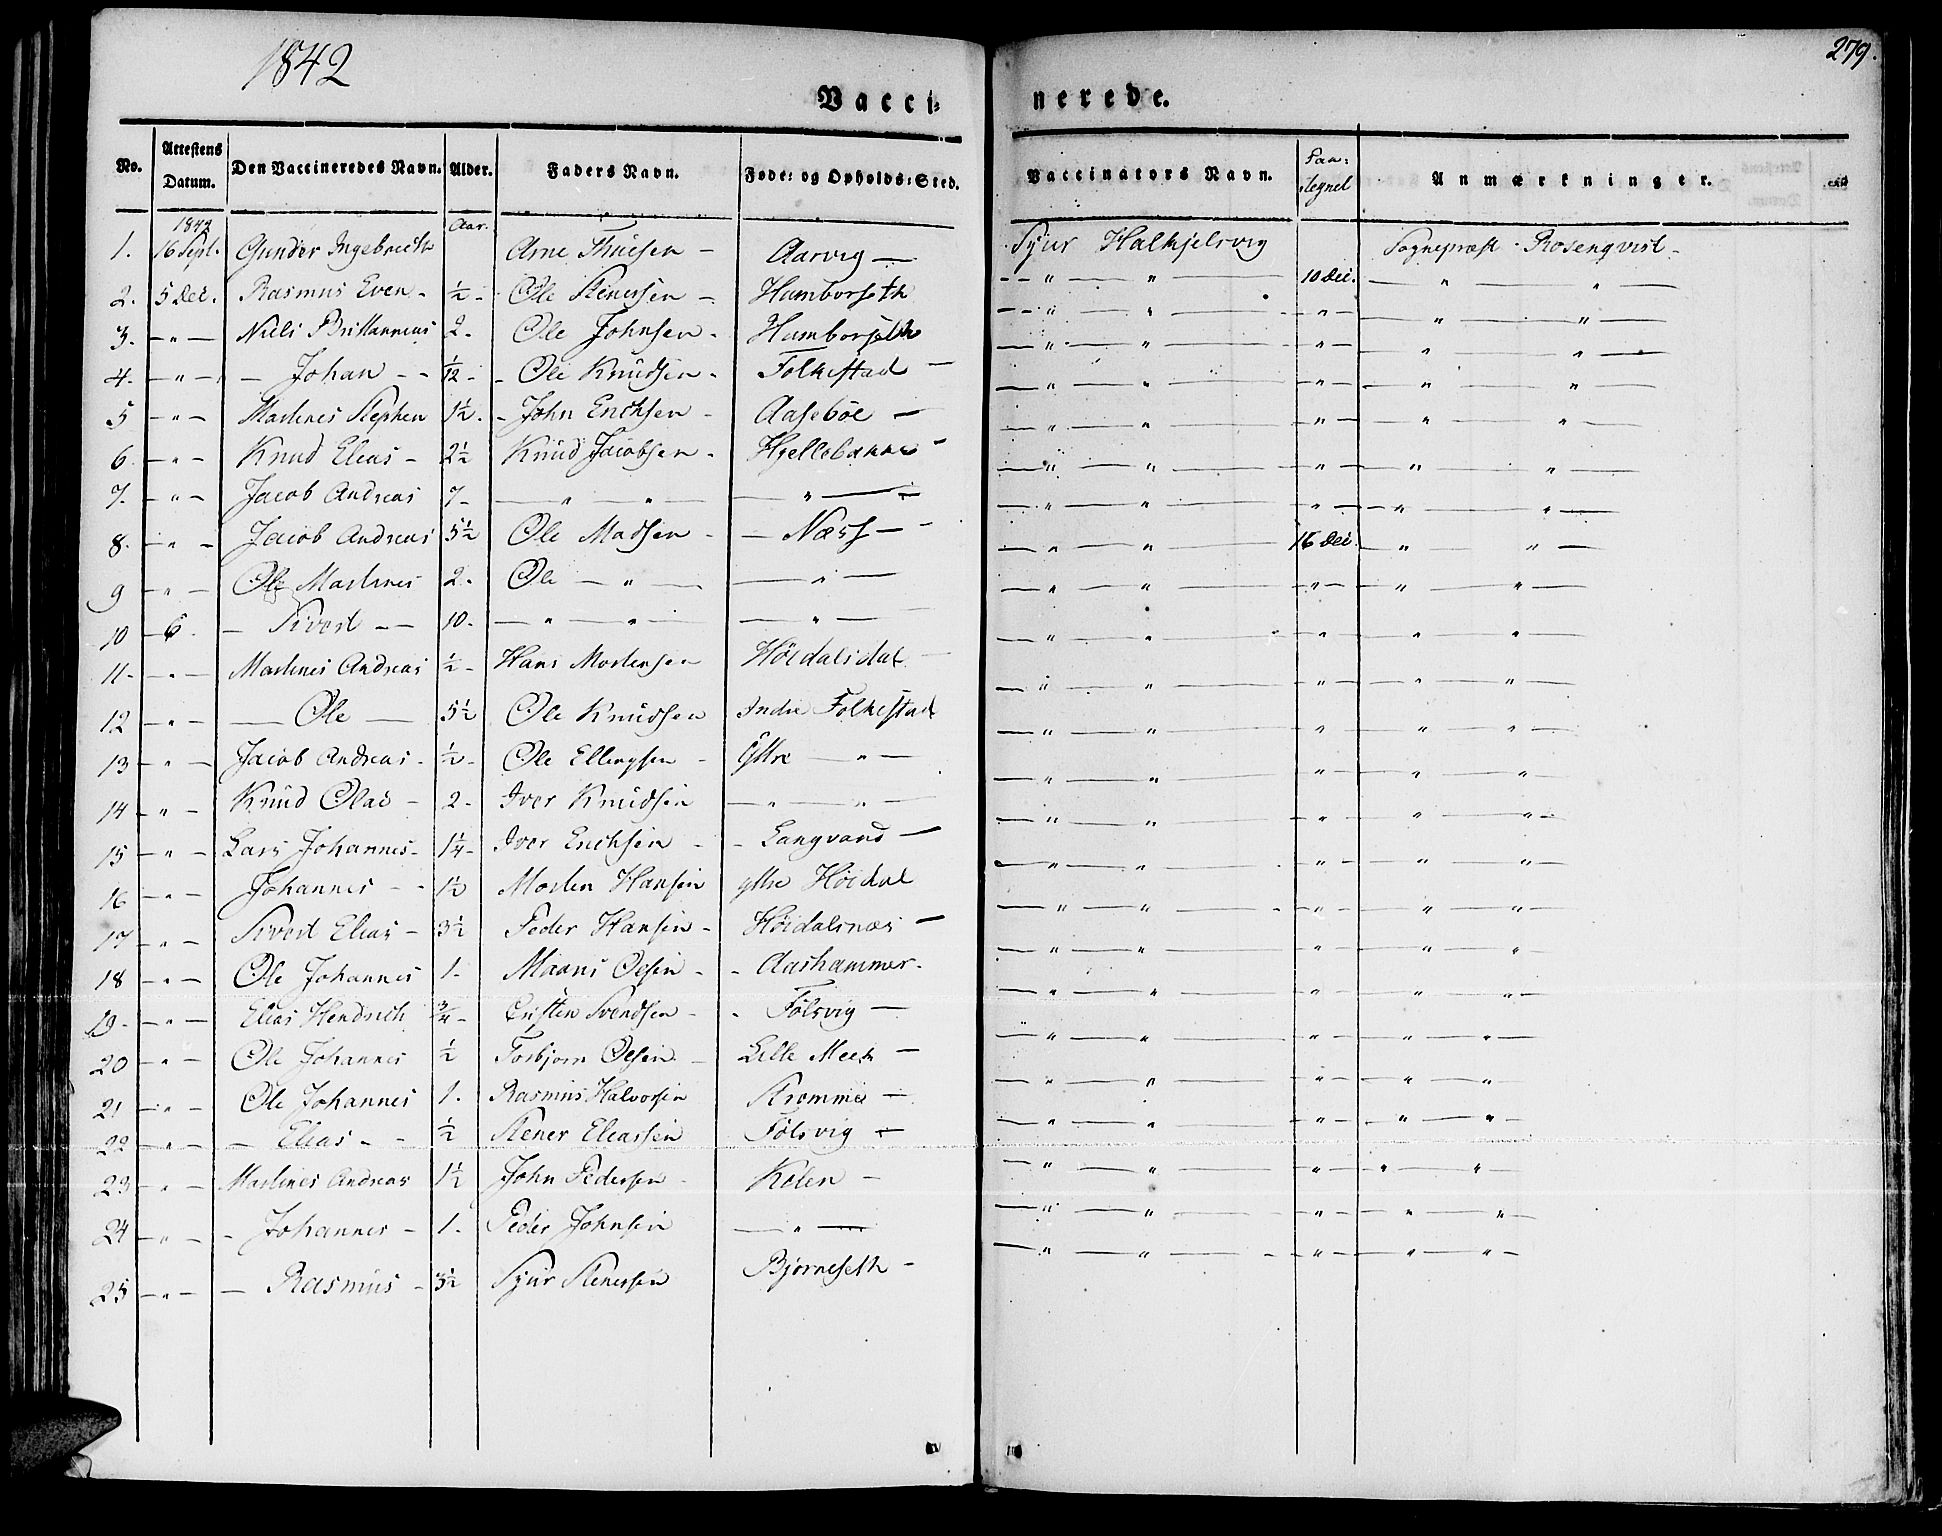 1842
279.
Vacci= nerede.
No. | Attestens Datum. | Den Vaccineredes Navn. | Alder. | Faders Navn. | Føde= og Opholds=Sted. | Vaccinators Navn. | Paa= tegnet | Anmærkninger.
1842 | Aar.
1. | 16 Sept. | Gunder Ingebrecth | | Arne Thuesen — | Aarvig — | Sjur Halkjelsvig | | Sognepræst Rosenqvist —
2. | 5 Dec. | Rasmus Even — | ½ — | Ole Stenersen — | Hamborseth | — " — " — | 10 Dec. | — " — " —
3. | — " — | Niels Brittannius | 2. | Ole Johnsen — | Hamborseth | — " — " — | — " — | — " — " —
4. | — " — | — Johan — — | 1/12 — | Ole Knudsen — | Folkestad — | — " — " — | — " — | — " — " —
5 | — " — | Martines Stephen | 1½. | John Erichsen — | Aasebøe — | — " — " — | — " — | — " — " —
6. | — " — | Knud Elias — | 2½ | Knud Jacobsen — | Hjellebakke — | — " — " — | — " — | — " — " —
7. | — " — | Jacob Andreas | 7 — | — " — " — | — " — | — " — " — | — " — | — " — " —
8. | — " — | Jacob Andreas | 5½ | Ole Madsen — | — Næss — | — " — " — | — " — | — " — " —
9 | — " — | Ole Martines | 2. | Ole — " — | — " — | — " — " — | 16 Dec. | — " — " —
10 | — 6. | — Sivert — — | 10. | — " — " — | — " — | — " — " — | — " — | — " — " —
11. | — " — | Martines Andreas | ½ — | Hans Mortensen | Höidalsdal — | — " — " — | — " — | — " — " —
12 | — " — | — Ole — | 5½ | Ole Knudsen | Indre Folkestad | — " — " — | — " — | — " — " —
13 | — " — | Jacob Andreas — | ½ — | Ole Ellingsen — | Yttre — " — | — " — " — | — " — | — " — " —
14 | — " — | Knud Olai — | 2 — | Iver Knudsen | — " — " — | — " — " — | — " — | — " — " —
15 | — " — | Lars Johannes — | 1¼ — | Iver Erichsen — | — Langvand — | — " — " — | — " — | — " — " —
16 | — " — | Johannes — — | 1½ | Morten Hansen | yttre Höidal | — " — " — | — " — | — " — " —
17 | — " — | Sivert Elias — | 3½ | Peder Hansen — | Höidalsnæs — | — " — " — | — " — | — " — " —
18 | — " — | Ole Johannes | 1. | Maans Olsen — | — Aashammer — | — " — " — | — " — | — " — " —
19. | — " — | Elias Hendrich | ¾ — | Cristen Svendsen — | — Følsvig — | — " — " — | — " — | — " — " —
20 | — " — | Ole Johannes | ½ | Torbjørn Olsen — | Lille Meek — | — " — " — | — " — | — " — " —
21 | — " — | Ole Johannes | 1. | Rasmus Halvorsen | Strømme — | — " — " — | — " — | — " — " —
22 | — " — | — Elias — — | ½ | Stener Eliassen | Følsvig — | — " — " — | — " — | — " — " —
23 | — " — | Martines Andreas | 1½ | John Pedersen — | Kolen — | — " — " — | — " — | — " — " —
24 | — " — | — Johannes — | 1. | Peder Johnsen | — " — | — " — " — | — " — | — " — " —
25 | — " — | — Rasmus — | 3½ | Sjur Stenersen | Bjørneseth — | — " — " — | — " — | — " — " —